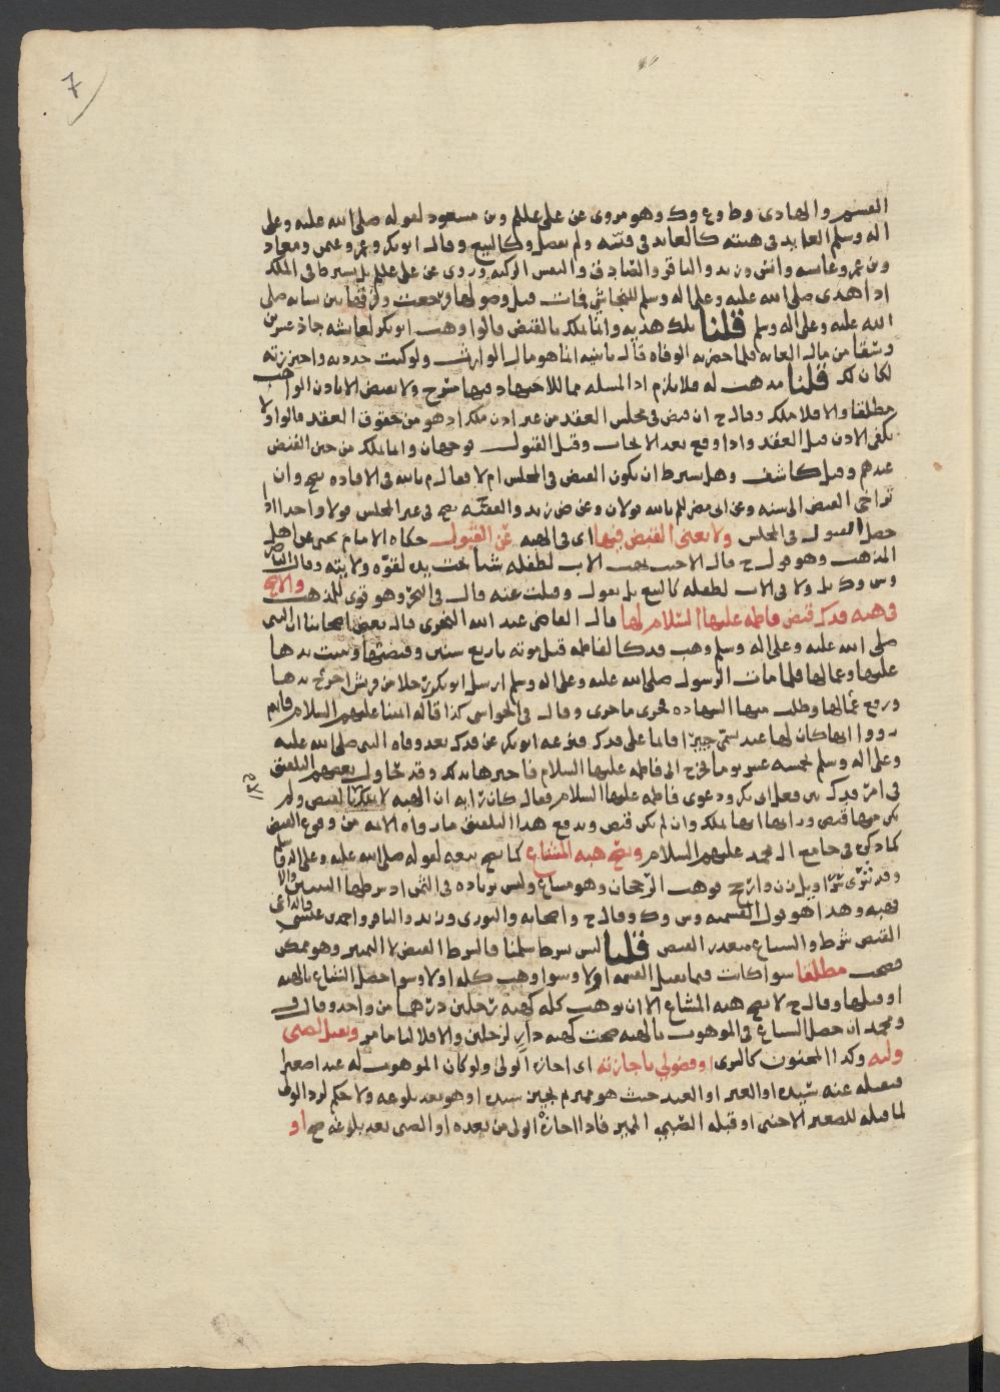 7
القسم والهادى وط وع وك وهو مروى عن على عللم وبن مسعود لقوله صلى الله عليه وعلى
اله وسلم العايد فى هبته كالعايد فى قيئه ولم يفصل وكالبيع وقال ابو بكر وعمر وعثمن ومعاذ
وبن عمر وعايشه وانس وزيد والباقر والصادق والنفس الزكيه وروى عن على عللم بل يشرط فى الملك
اذ اهدى صلى الله عليه وعلى اله وسلم للنجاشى فمات قبل وصولها فرجعت وفرقها بين نسايه صلى
الله عليه وعلى اله وسلم قلنا تلك هديه وانما تملك بالقبض قالوا وهب ابو بكر لعايشه جاذ عشرين
وسقا من مال الغابه فلما حضرته الوفاه قال يا بنيه انما هو مال الوارث ولو كنت جددته واحتزته
لكان لك قلنا مذهب له فلا يلزم اذ المسله مما للاجتهاد فيها مسرح ولا يقبض الا باذن الواهب
مطلقا والا فلا ملك وقال ح ان قبض فى مجلس العقد من غير اذن ملك اذ هو من حقوق العقد قالوا ولا
يكفى الاذن قبل العقد واذا وقع بعد الايجاب وقبل القبول فوجهان وانما يملك من حين القبض
عندهم وقيل كاشف وهل يشرط ان يكون القبض فى المجلس ام لا فقال م بالله فى الافاده يصح وان
تراخى القبض الى سنه وعن ابى مضر للم بالله قولان وعن ض زيد والفقيه يصح فى غير المجلس قولا واحدا اذا
حصل القبول فى المجلس ولا يغنى القبض فيها اى فى الهبه عن القبول حكاه الامام يحيى عن اهل
المذهب وهو قول ح قال الا حيث يهب الاب لطفله شيا تحت يده لقوه ولايته وقال الناصر
وش وك بل ولا فى الاب لطفله كالبيع بل يقول وقبلت عنه قال فى البحر وهو قوى للمذهب والاصح
فى هبه فدك قبض فاطمه عليها السلام لها قال القاضى عبد الله النحوى قال بعض اصحابنا ان النبى
صلى الله عليه وعلى اله وسلم وهب فدكا لفاطمه قبل موته باربع سنين وقبضتها وثبت يدها
عليها وعمالها فلما مات الرسول صلى الله عليه وعلى اله وسلم ارسل ابو بكر رجلا من قريش اخرج يدها
ورفع عمالها وطلب منها الشهاده فجرى ما جرى وقال فى الحواشى كذا قاله ايمتنا عليهم السلام فانهم
رووا انها كان لها عبد يسمى جبيرا قايما على فدك فنزعه ابو بكر عن فدك بعد وفاه النبى صلى الله عليه
وعلى اله وسلم بخمسه عشر يوما فخرج الى فاطمه عليها السلام فاخبرها بذلك وقد تحاول بعضهم التلفيق
فى امر فدك بين فعل ابى بكر ودعوى فاطمه عليها السلام فقال كان رايه ان الهبه لا تملك الا بالقبض ولم
يكن منها قبض ورايها انها تملك وان لم يكن قبض ويدفع هذا التلفيق ما رواه الايمه من وقوع القبض
كما ذكره فى جامع ال محمد عليهم السلام وتصح هبه المشاع كما يصح بيعه لقوله صلى الله عليه وعلى اله وسلم
القبض شرط والشياع متعذر القبض قلنا ليس بشرط سلمنا فالشرط القبض لا التمييز وهو ممكن
فصحت مطلقا سوا كانت فيما يقبل القسمه اولا وسوا وهب كله اولا وسوا حصل الشياع بالهبه
او قبلها وقال ح لا يصح هبه المشاع الا ان يوهب كله كهبه رجلين درهما من واحد وقال ف
ومحمد ان حصل الشياع فى الموهوب بالهبه صحت كهبه دار لرجلين والا فلا لنا ما مر ويقبل للصبى
وليه وكذا المجنون كالشرى او فضولى باجازته اى اجازه الولى ولو كان الموهوب له عبدا صغيرا
فيقبله عنه سيده او الغير او العبد حيث هو مميز ثم يجيز سيده او هو بعد بلوغه ولا حكم لرد الولى
لما قبله للصغير الاجنبى او قبله الصبى المميز فاذا اجازه الولى من بعده او الصبى بعد بلوغه صح او